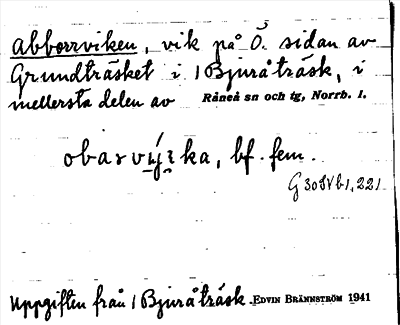 Abborrviken, vik på Ö. sidan av
Grundträsket i 1 Bjuråträsk, i
mellersta delen av Råneå sn och tg, Norrb. l.
bf. fem.
G 30
Uppgiften från 1 Bjuråträsk. EDVIN BRÄNNSTRÖM 1941